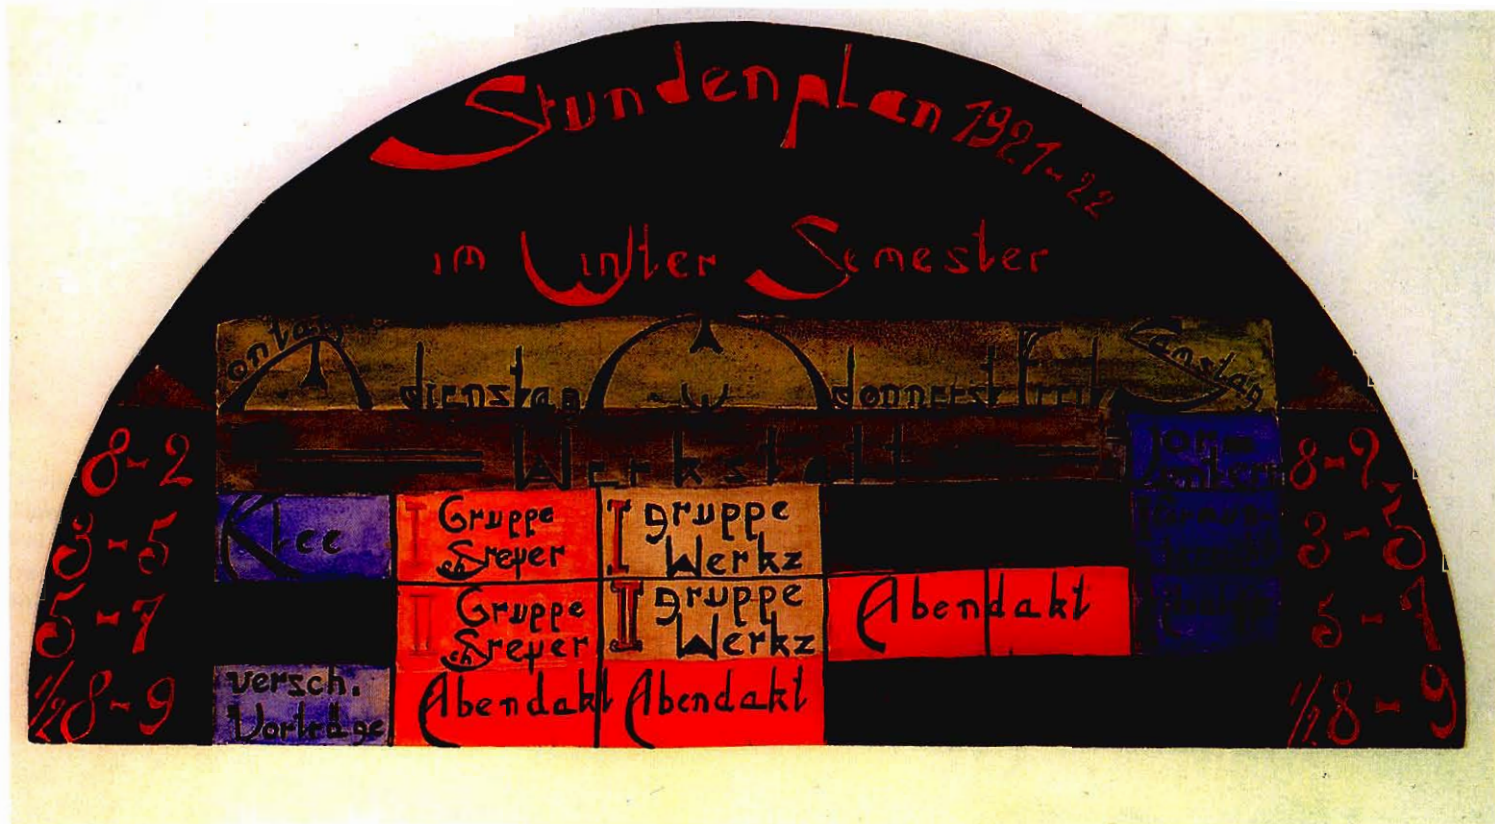 Stundenplan 1921-22
im Winter Semester
Montag dienstag donnerst freit Samstag
8-2 Werkstatt 8-2
3-5 Klee I Gruppe Schreyer I gruppe Werkz 3-5
5-7 II Gruppe Schreyer II gruppe Werkz Abendakt 5-7
1/2 8-9 versch. Vorträge Abendakt Abendakt 1/2 8-9